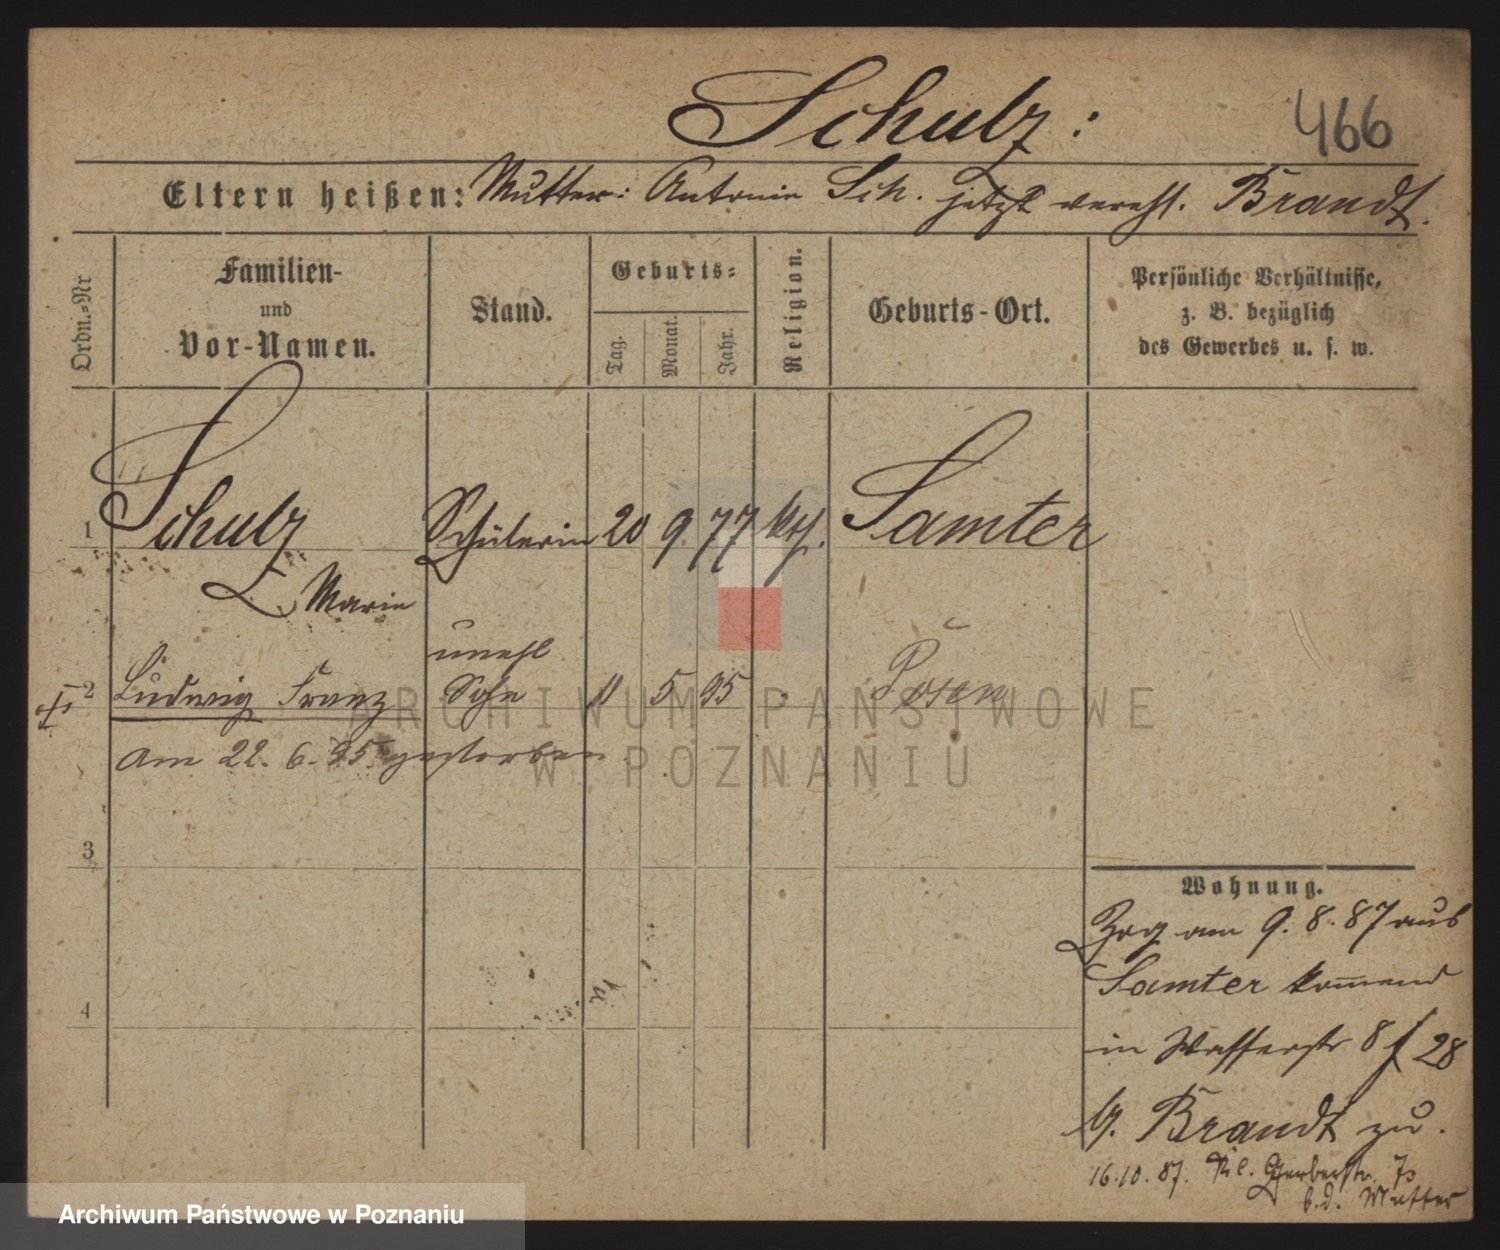 Schulz:
466
Eltern heißen: Mutter: Antonie Sch. jetzt verehl. Brandt.
Ordn.-Nr
Familien-
und
Vor-Namen.
Stand.
Geburts-
Tag.
Monat.
Jahr.
Religion.
Geburts-Ort.
Persönliche Verhältnisse,
z. B. bezüglich
des Gewerbes u. s. w.
1 Schulz Schülerin 20 9 77 kth. Samter
Marie
unehl
2 Ludwig Franz Sohn 11 5 95 Posen
am 22. 6. 95 gestorben
3
4
Wohnung.
Zog am 9. 8. 87 aus
Samter kommend
in Wasserstr 8/28
b. Brandt zu.
16.10.87. Kl. Gerberstr. 7
b. d. Mutter
ARCHIWUM PAŃSTWOWE
W POZNANIU
Archiwum Państwowe w Poznaniu